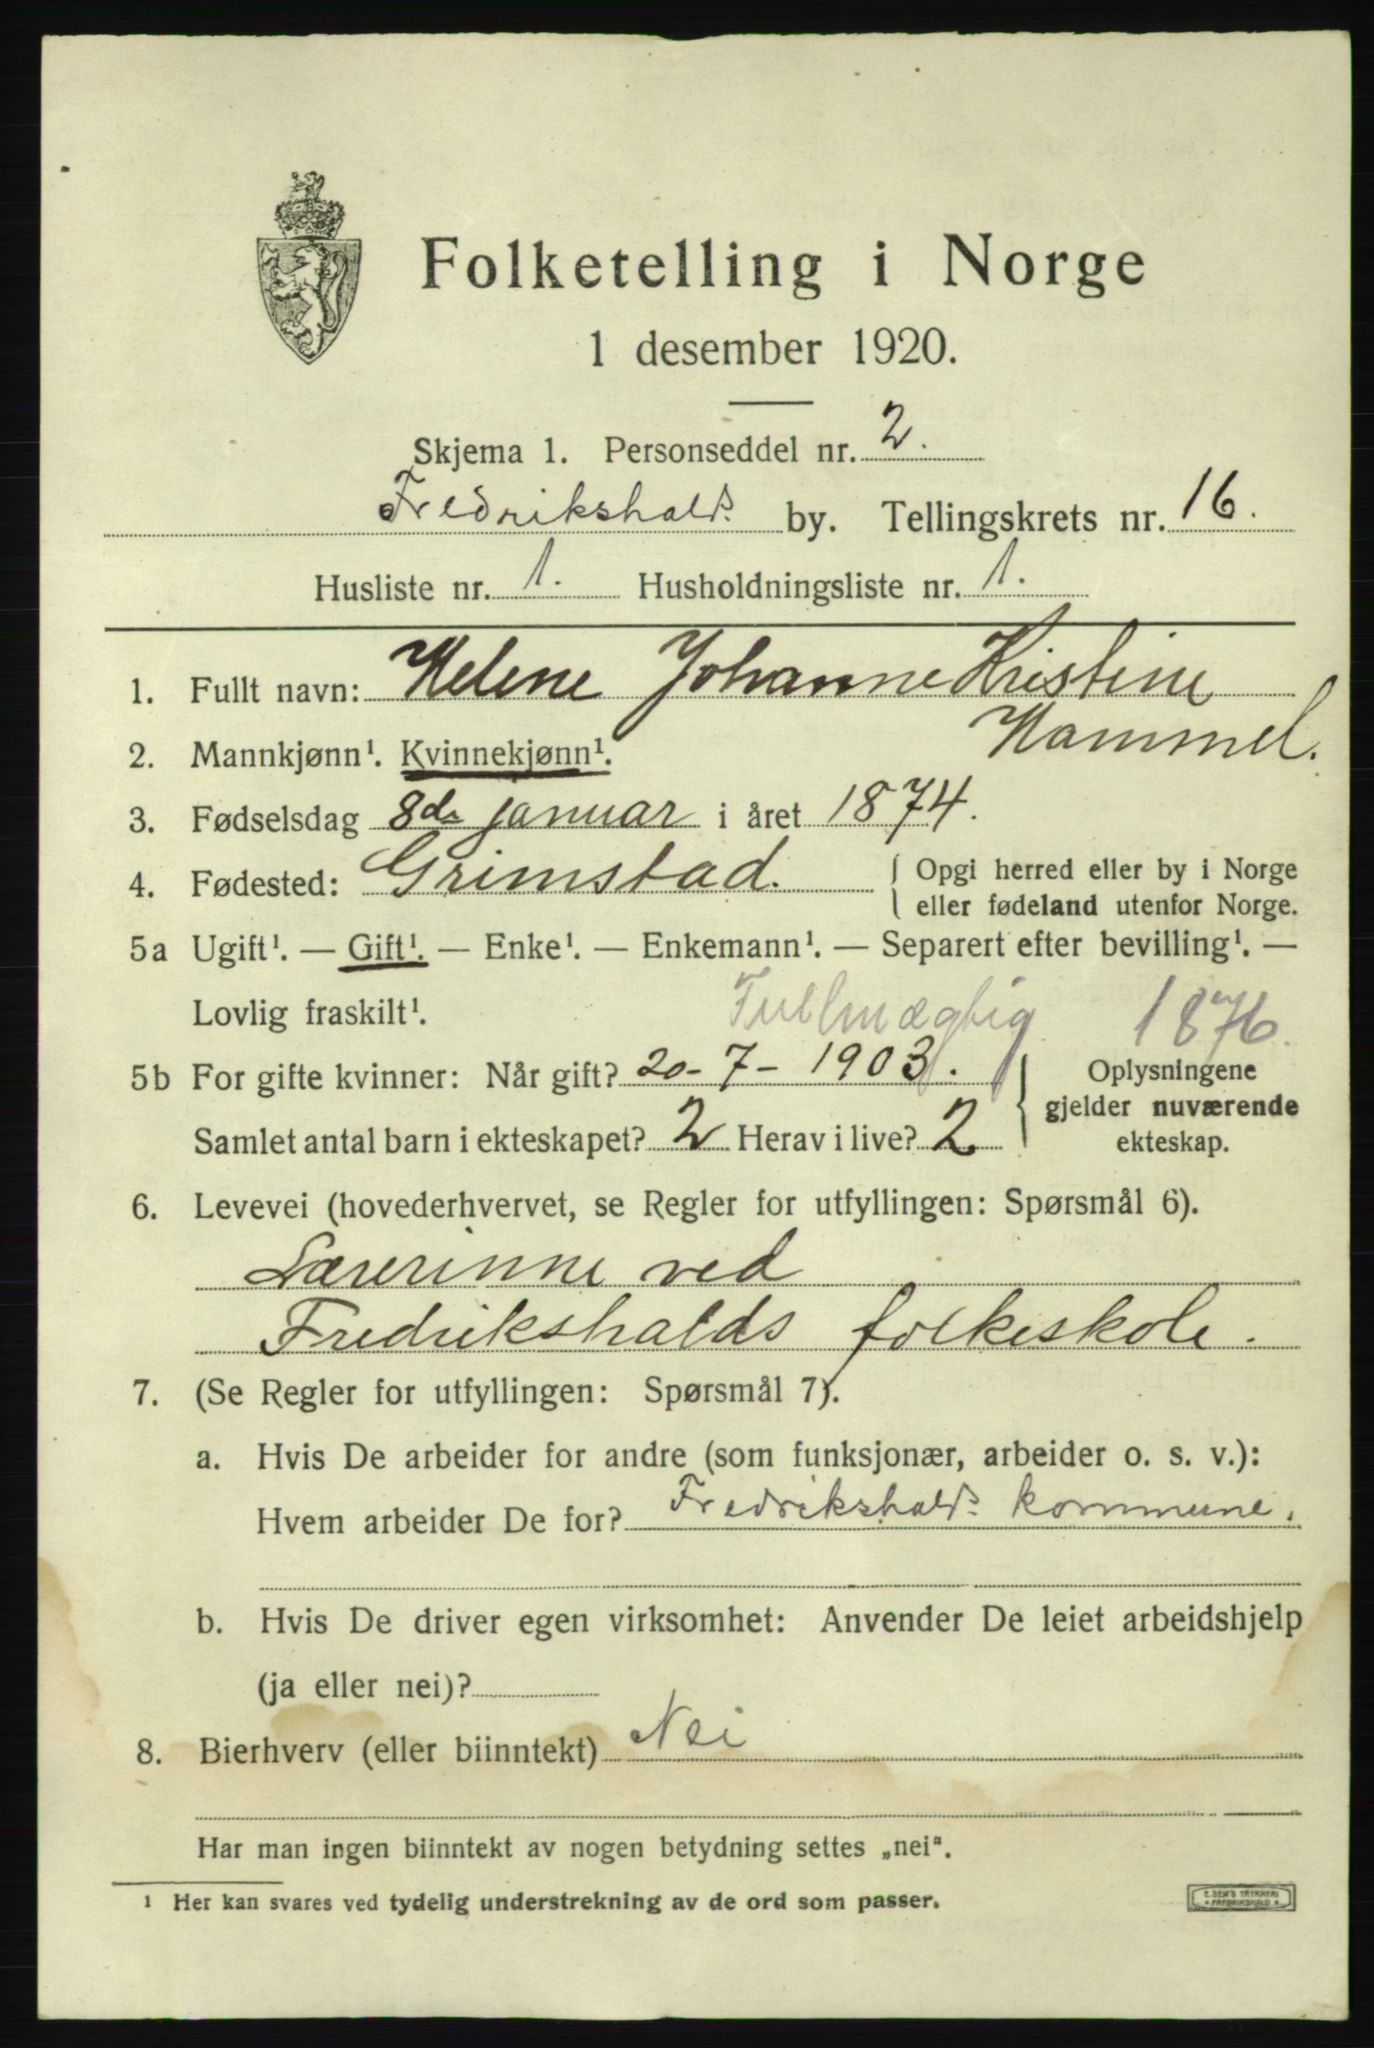 Folketelling i Norge
1 desember 1920.
Skjema 1. Personseddel nr. 2.
Fredrikshalds by. Tellingskrets nr. 16.
Husliste nr. 1. Husholdningsliste nr. 1.
1. Fullt navn: Helene Johanne Kristine
Hammel.
2. Mannkjønn¹. Kvinnekjønn¹.
3. Fødselsdag 8de januar i året 1874.
4. Fødested: Grimstad. { Opgi herred eller by i Norge
eller fødeland utenfor Norge.
5a Ugift¹. — Gift¹. — Enke¹. — Enkemann¹. — Separert efter bevilling¹. —
Lovlig fraskilt¹. Fullmægtig 1876.
5b For gifte kvinner: Når gift? 20-7-1903. } Oplysningene
gjelder nuværende
Samlet antal barn i ekteskapet? 2 Herav i live? 2 ekteskap.
6. Levevei (hovederhvervet, se Regler for utfyllingen: Spørsmål 6).
Lærerinne ved
Fredrikshalds folkeskole.
7. (Se Regler for utfyllingen: Spørsmål 7).
a. Hvis De arbeider for andre (som funksjonær, arbeider o. s. v.):
Hvem arbeider De for? Fredrikshalds kommune.
b. Hvis De driver egen virksomhet: Anvender De leiet arbeidshjelp
(ja eller nei)?
8. Bierhverv (eller biinntekt) Nei
Har man ingen biinntekt av nogen betydning settes „nei“.
¹ Her kan svares ved tydelig understrekning av de ord som passer.
E. SEM'S TRYKKERI
FREDRIKSHALD